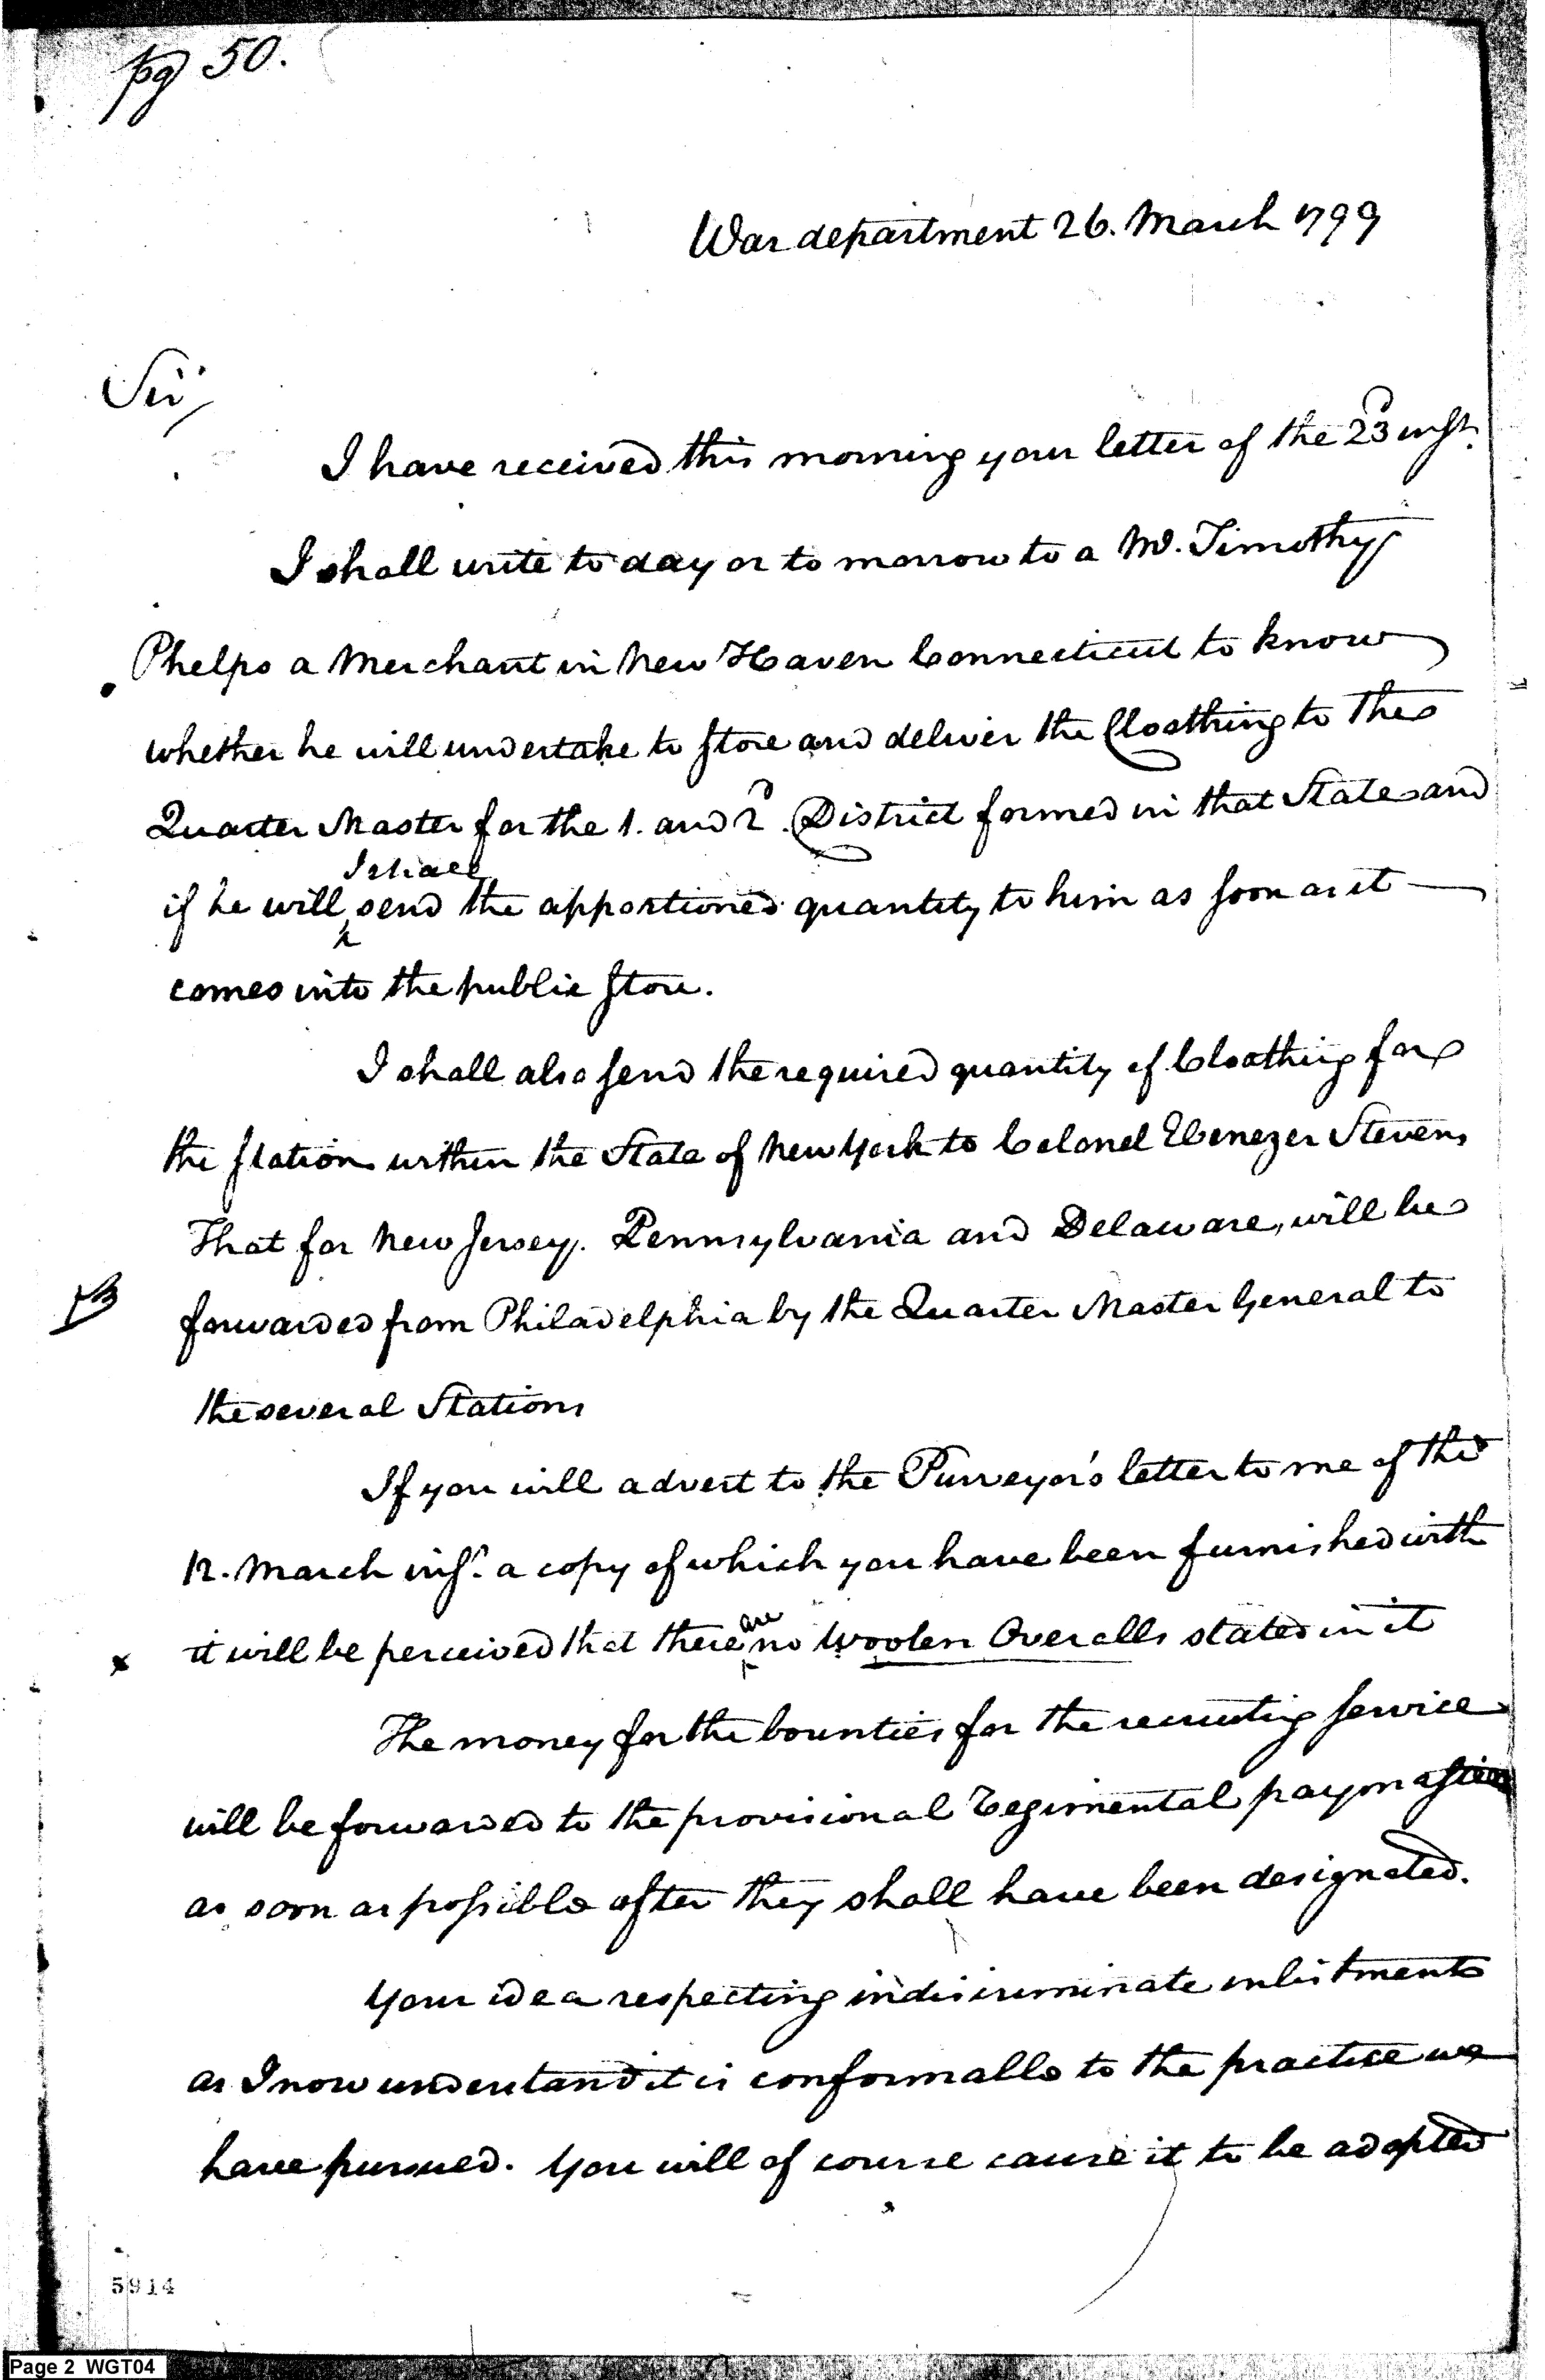 pg 50.
War department 26. March 1799
Sir,
I have received this morning your letter of the 23d inst.
I shall write to day or to morrow to a Mr. Timothy
Phelps a Merchant in New Haven Connecticut to know
whether he will undertake to store and deliver the Cloathing to the
Quarter Master for the 1. and 2d. District formed in that State and
I shall
if he will send the apportioned quantity to him as soon as it
comes into the public store.
I shall also send the required quantity of Cloathing for
the stations within the State of New York to Colonel Ebenezer Stevens
That for New Jersey. Pennsylvania and Delaware, will be
forwarded from Philadelphia by the Quarter Master General to
the several Stations
If you will advert to the Purveyor's letter to me of the
12. March inst. a copy of which you have been furnished with
are
x it will be perceived that there no Woolen Overalls stated in it
The money for the bounties for the recruiting service
will be forwarded to the provisional Regimental paymasters
as soon as possible after they shall have been designated.
Your idea respecting indiscriminate inlistments
as I now understand it is conformable to the practice we
have pursued. You will of course cause it to be adopted
5914
Page 2 WGT04